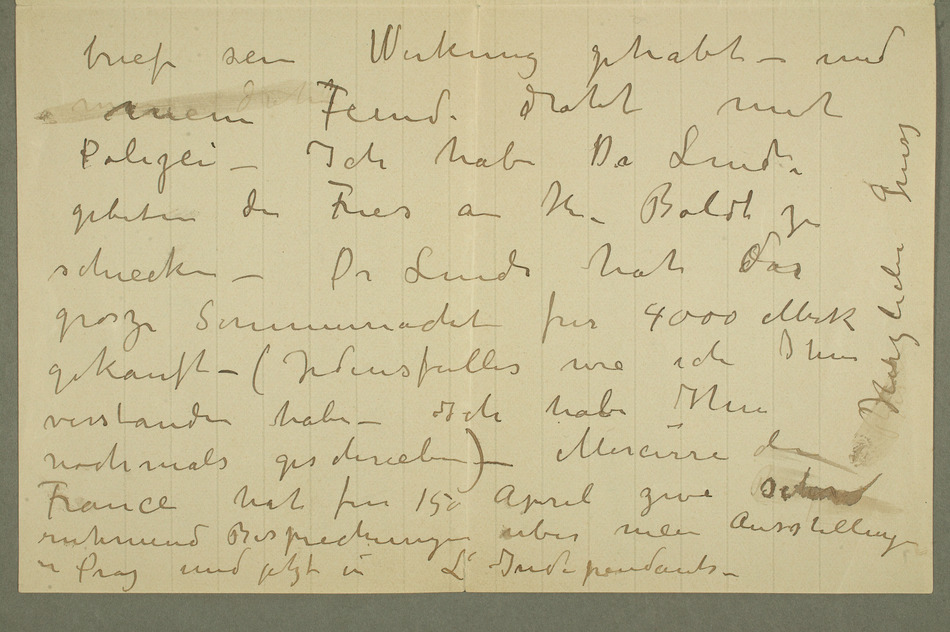 brief sein Wirkung gehabt – und
meine Feinde droht mit
Polizei – Ich habe Dr Linde
gebeten den Fries an Hr. Boldt zu
schicken – Dr Linde hat das
grosze Sommernacht für 4000 Mark
gekauft – (Jedensfalles wie ich Ihnen
verstanden habe – Ich habe Ihnen
nochmals geschrieben) – Mercüre de
France hat fur 15º April zwei
ruhmend Besprechungen uber mein Ausstellung
in Prag und jetzt in L'Independants –
Herzlichen Gruss